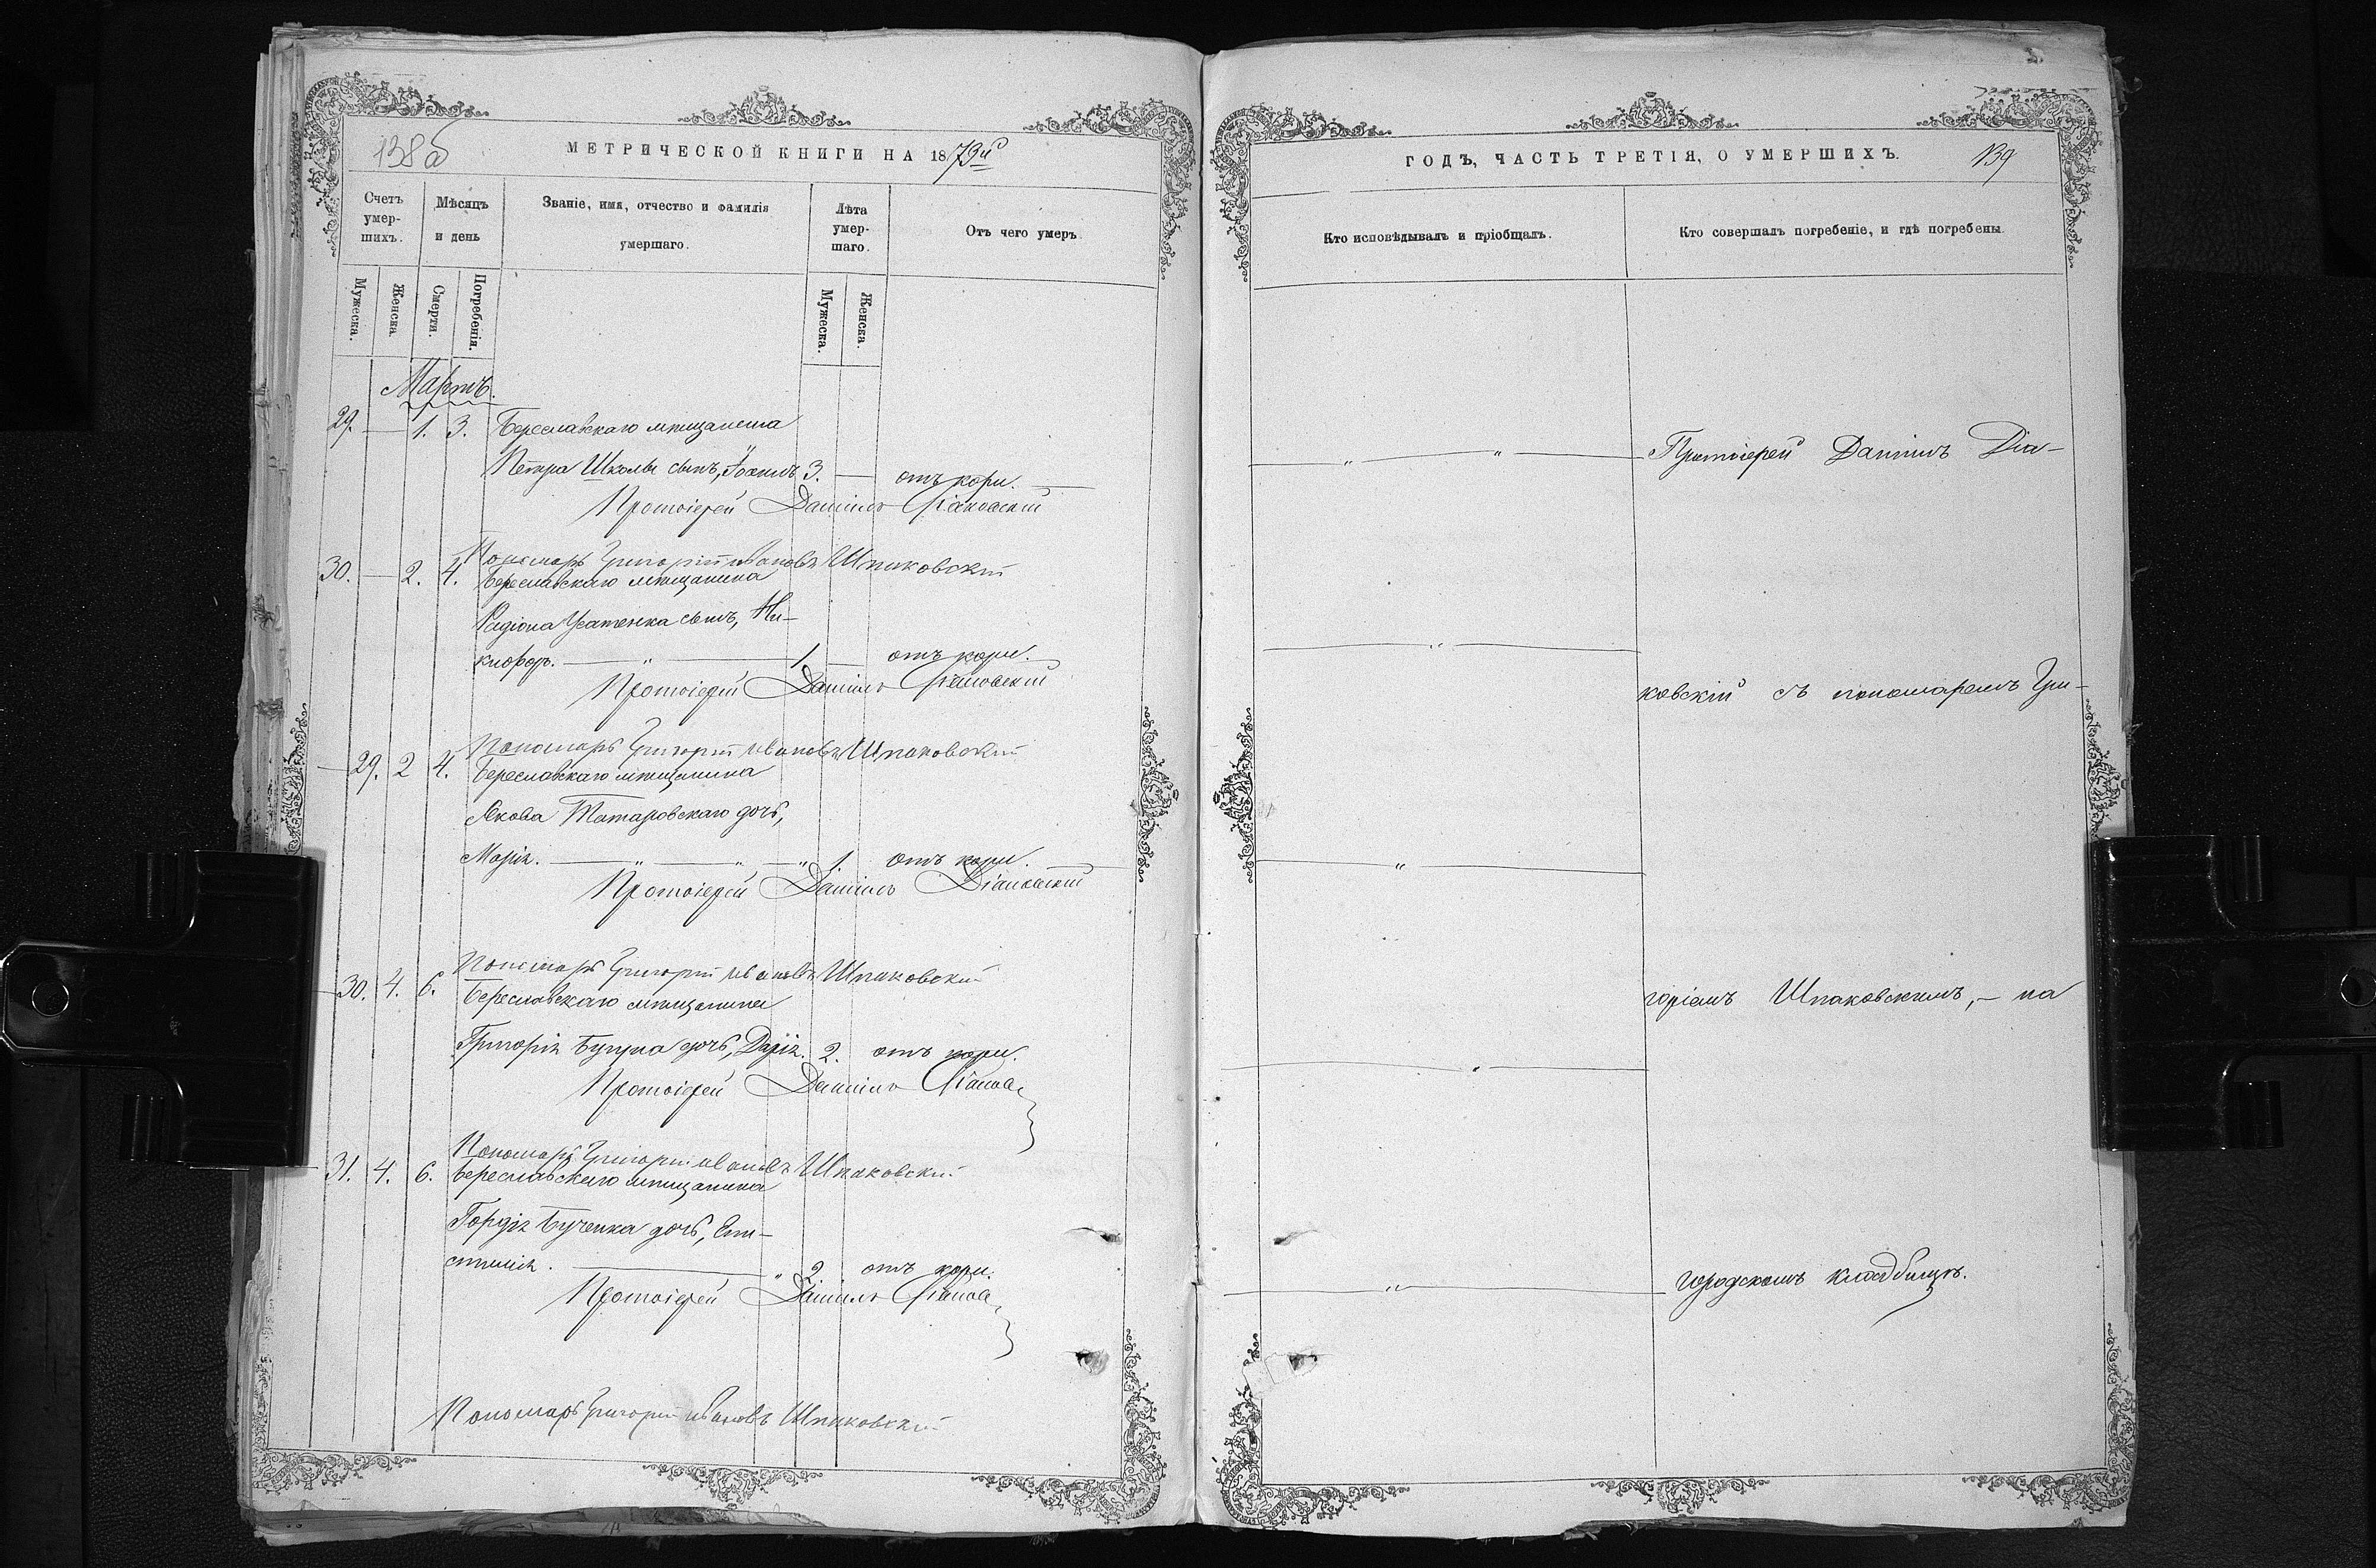 138б
МЕТРИЧЕСКОЙ КНИГИ НА 1879й
Счетъ умер-шихъ.
Мѣсяцъ и день
Званіе, имя, отчество и фамилія умершаго.
Лѣта умер-шаго.
Отъ чего умеръ.
Мужеска.
Женска.
Смерти.
Погребенія.
Мужеска.
Женска.
Мартъ.
29. — 1. 3. Береславскаго мѣщанина
Петра Школы сынъ, 3. — отъ кори. —
Протоіерей Даніилъ Діаковскій
Пономарь Григорій Ивановъ Шпаковскій
30. — 2. 4. Береславскаго мѣщанина
Родіона сынъ, Ни-
кифоръ. — " — 1 — отъ кори. —
Протоіерей Даніилъ Діаковскій
Пономарь Григорій Ивановъ Шпаковскій
— 29. 2 4. Береславскаго мѣщанина
Якова Татаровскаго дочь,
Марія. — " — " — " 1. отъ кори. —
Протоіерей Даніилъ Діаковскій
Пономарь Григорій Ивановъ Шпаковскій
— 30. 4. 6. Береславскаго мѣщанина
Григорія дочь, Дарія. 2. отъ кори.
Протоіерей Даніилъ Діаков
Пономарь Григорій Ивановъ Шпаковскій
— 31. 4. 6. Береславскаго мѣщанина
Гордія Бученка дочь, Ев-
стимія. — " 2 отъ кори.
Протоіерей Даніилъ Діаков
Пономарь Григорій Ивановъ Шпаковскій
ГОДЪ, ЧАСТЬ ТРЕТІЯ, О УМЕРШИХЪ.
139
Кто исповѣдывалъ и пріобщалъ.
Кто совершалъ погребеніе, и гдѣ погребены.
— " — " — Протоіерей Даніилъ Діа-
— " —
ковскій съ пономаремъ Гри-
— " —
горіемъ Шпаковскимъ, — на
— " —
— " — городскомъ кладбищѣ.